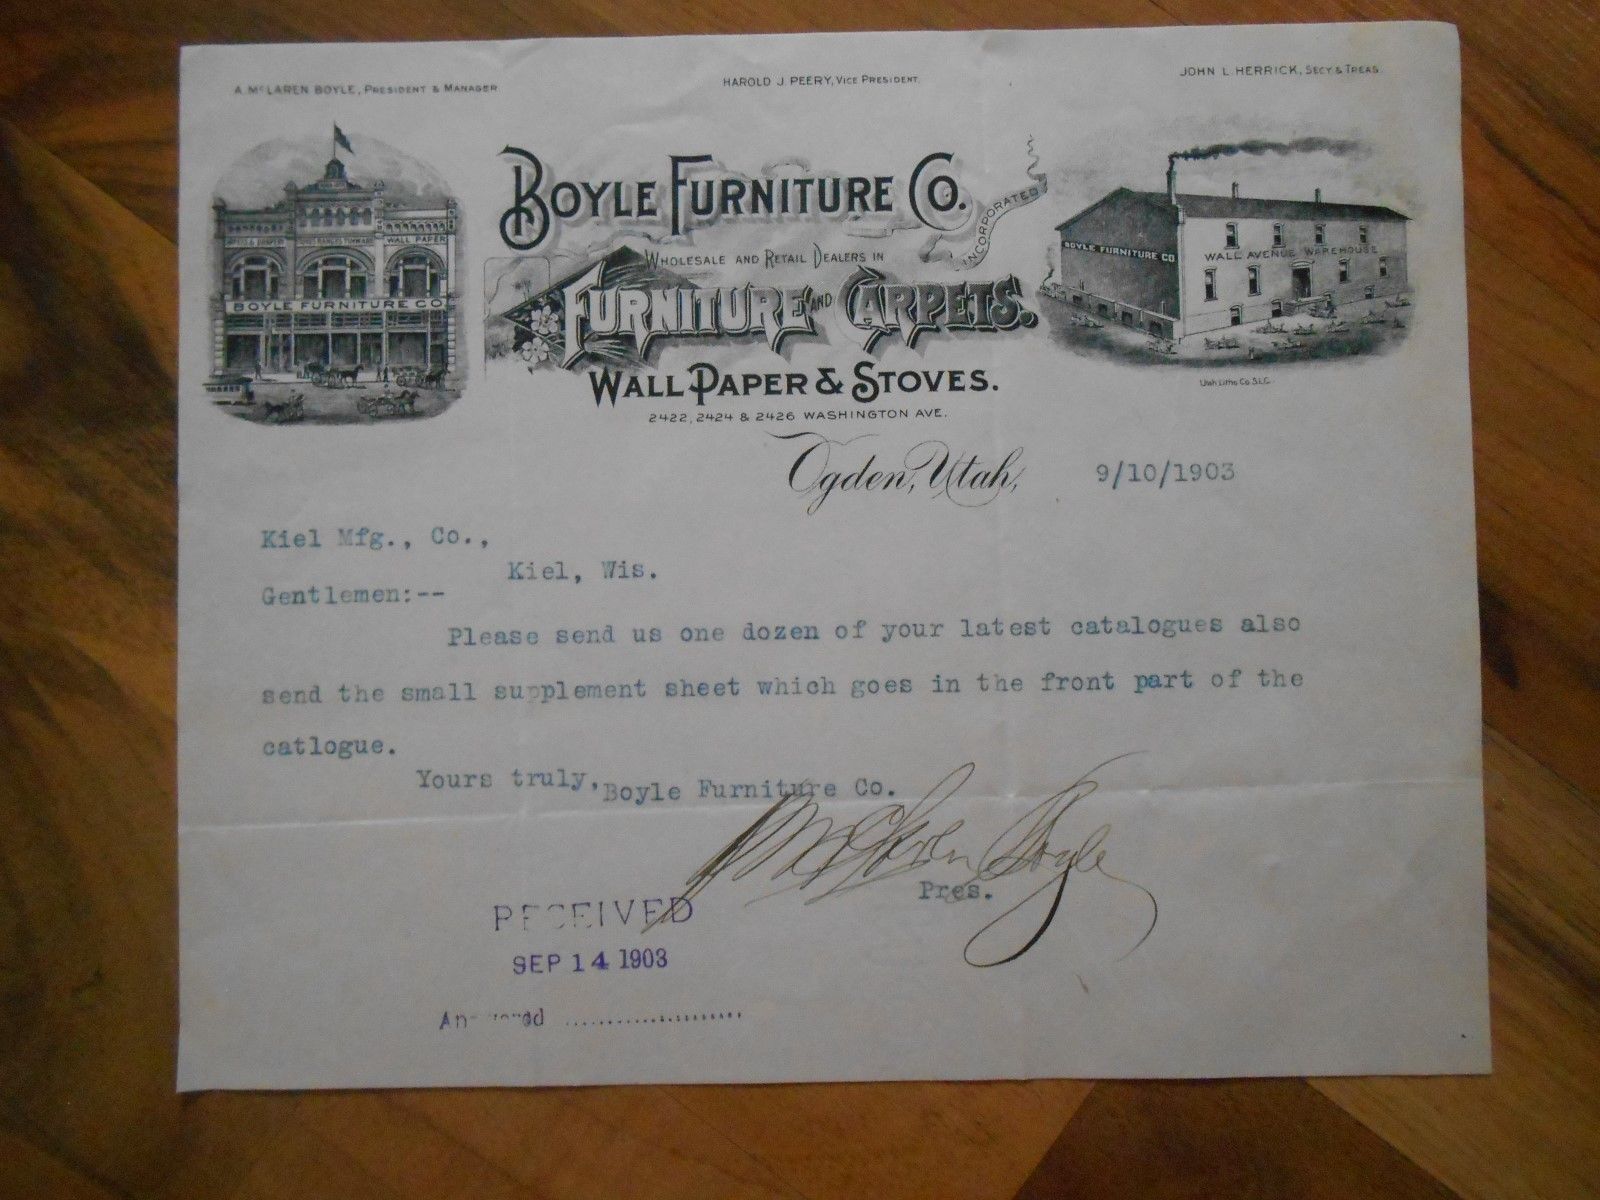 A. McLAREN BOYLE, PRESIDENT & MANAGER
HAROLD J. PEERY, VICE PRESIDENT.
JOHN L. HERRICK, SECY & TREAS.
BOYLE FURNITURE CO.
INCORPORATED
WHOLESALE AND RETAIL DEALERS IN
FURNITURE AND CARPETS.
WALL PAPER & STOVES.
2422, 2424 & 2426 WASHINGTON AVE.
WALL PAPER
BOYLE FURNITURE CO
BOYLE FURNITURE CO
WALL AVENUE WAREHOUSE
Utah Litho Co. S.L.C.
Ogden, Utah, 9/10/1903
Kiel Mfg., Co.,
Kiel, Wis.
Gentlemen:--
Please send us one dozen of your latest catalogues also
send the small supplement sheet which goes in the front part of the
catlogue.
Yours truly,
Boyle Furniture Co.
A McLaren Boyle
Pres.
RECEIVED
SEP 14 1903
Answered ........................